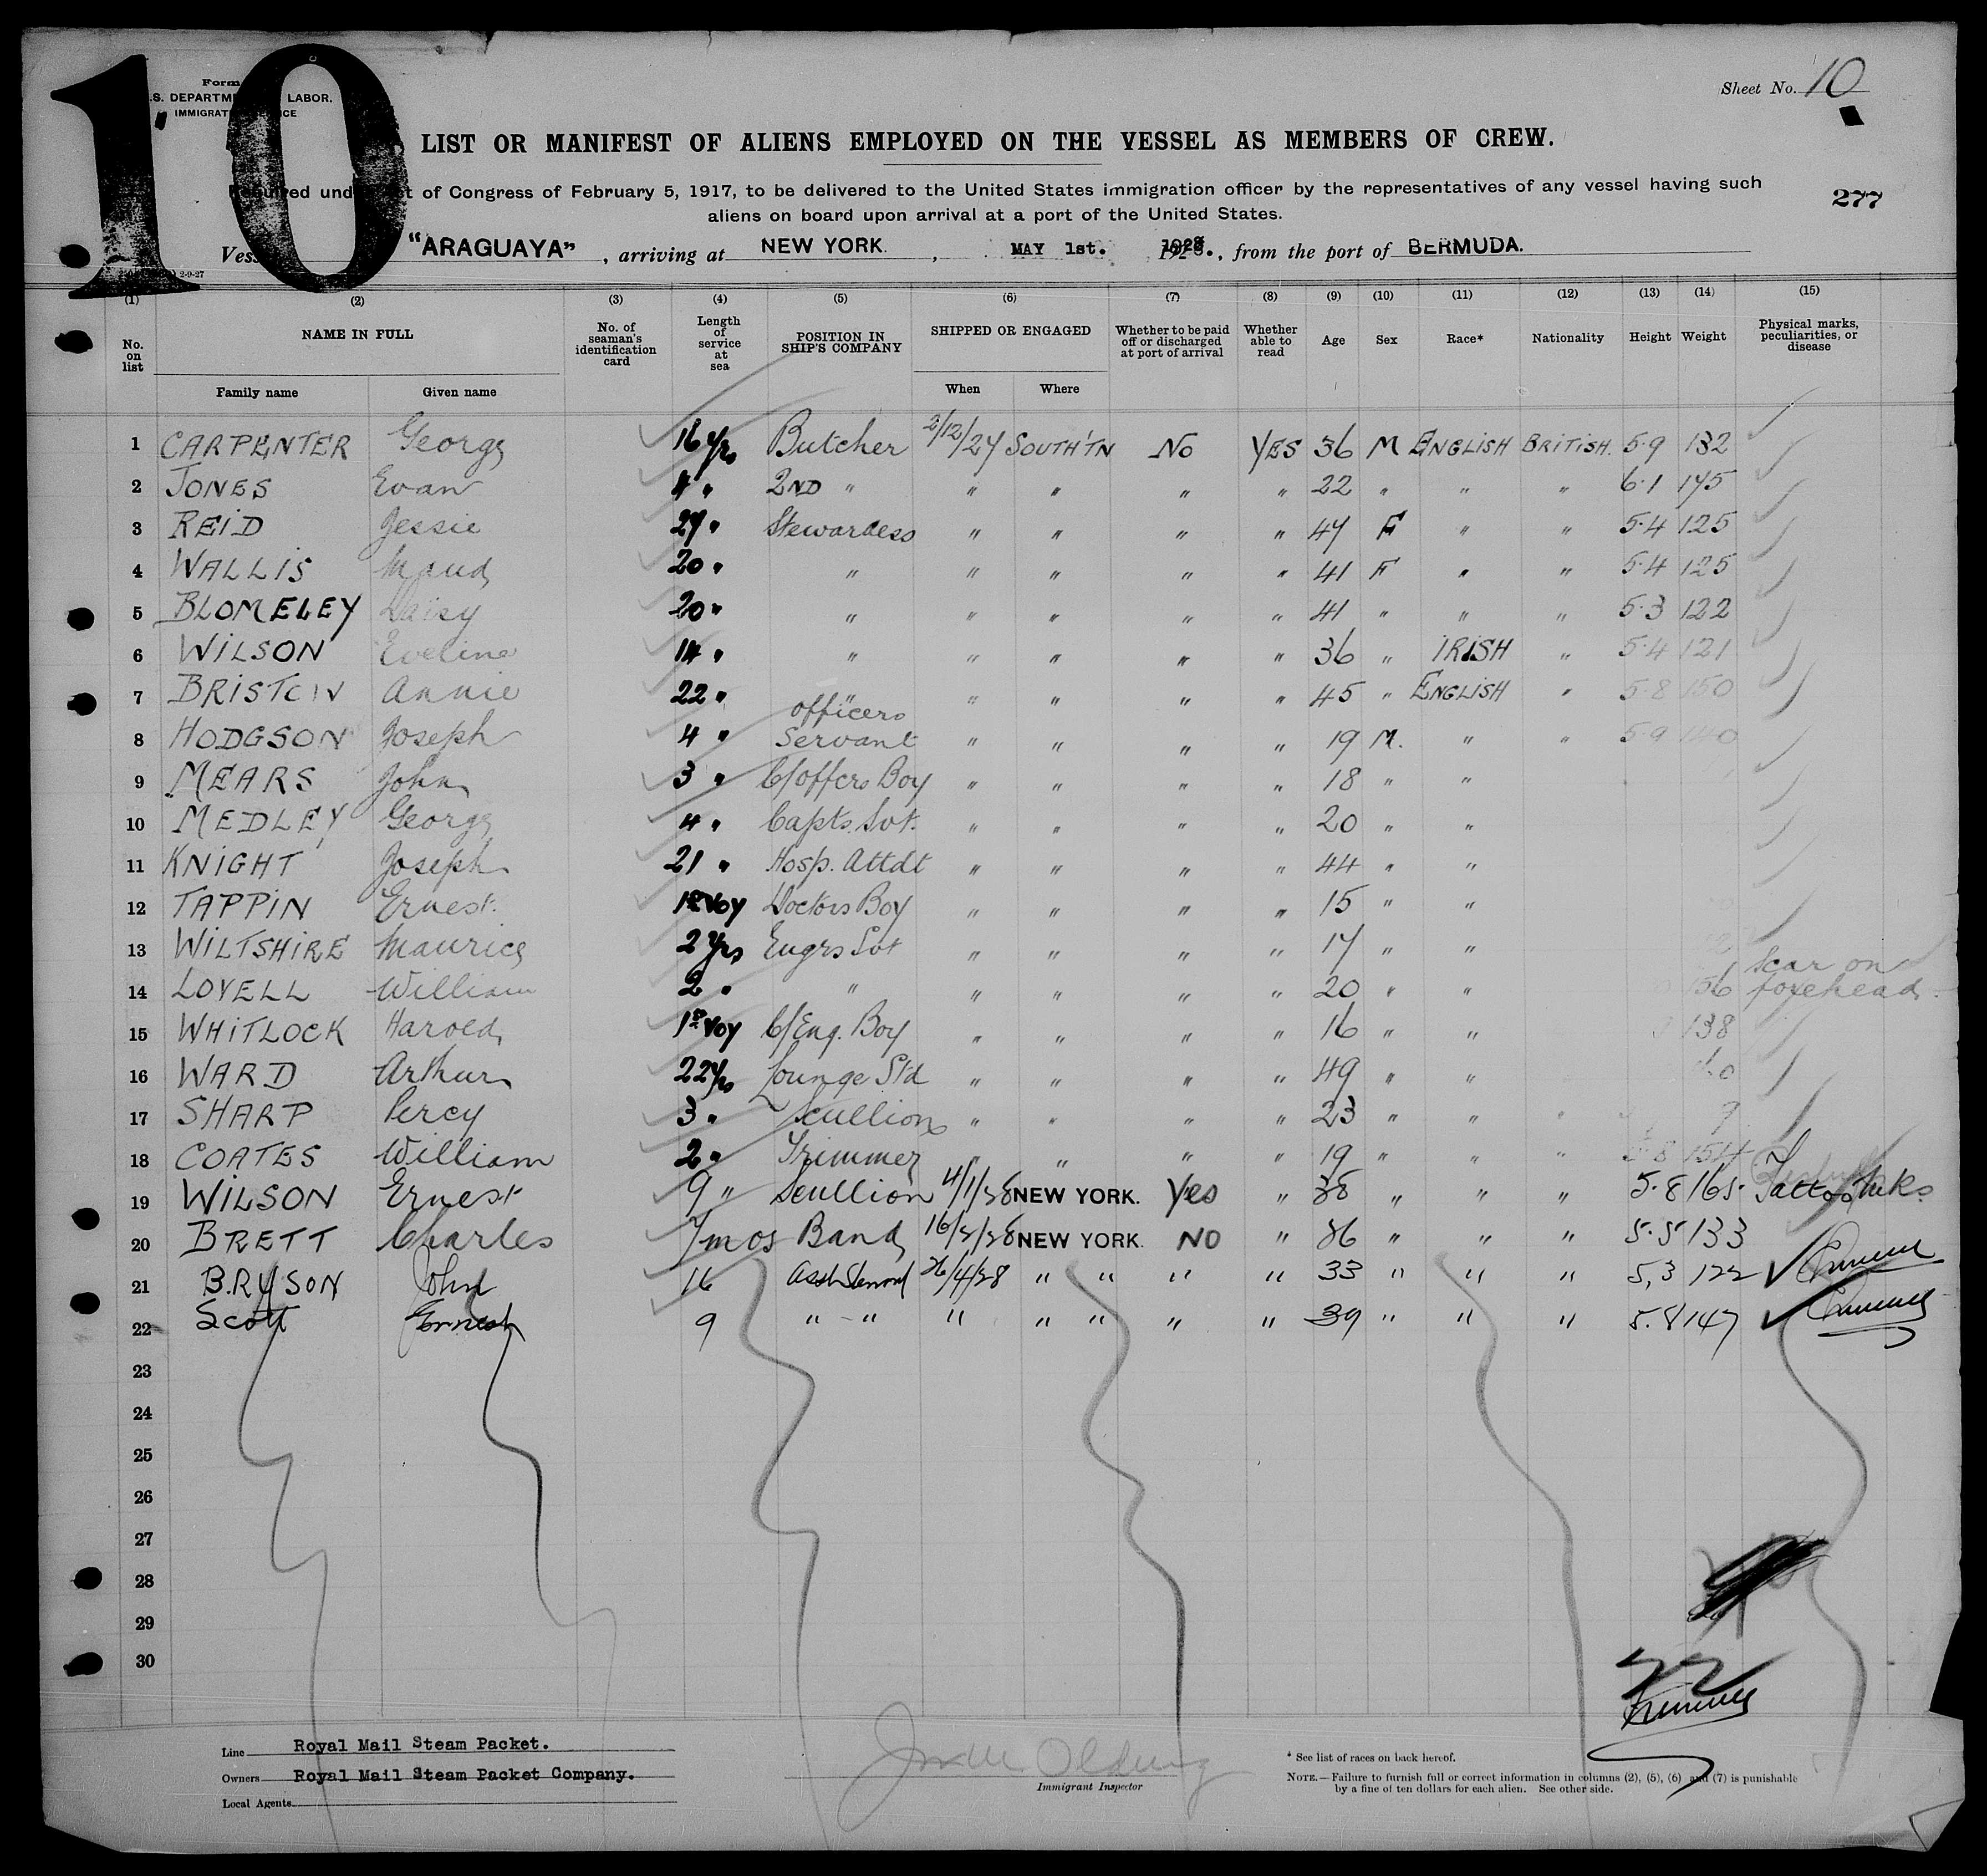 10
Form
S. DEPARTM LABOR.
IMMIGRAT ICE
Sheet No. 10
LIST OR MANIFEST OF ALIENS EMPLOYED ON THE VESSEL AS MEMBERS OF CREW.
Required und t of Congress of February 5, 1917, to be delivered to the United States immigration officer by the representatives of any vessel having such
277
aliens on board upon arrival at a port of the United States.
Vess "ARAGUAYA" , arriving at NEW YORK. , MAY 1st. 1928. , from the port of BERMUDA.
2-9-27
(1) (2) (3) (4) (5) (6) (7) (8) (9) (10) (11) (12) (13) (14) (15)
No. on list NAME IN FULL No. of seaman's identification card Length of service at sea POSITION IN SHIP'S COMPANY SHIPPED OR ENGAGED Whether to be paid off or discharged at port of arrival Whether able to read Age Sex Race* Nationality Height Weight Physical marks, peculiarities, or disease
Family name Given name When Where
1 CARPENTER George 16 yrs Butcher 2/12/27 SOUTH'TN No YES 36 M ENGLISH BRITISH. 5.9 132
2 JONES Evan 4 " 2ND " " " " " 22 " " " 6.1 175
3 REID Jessie 27 " Stewardess " " " " 47 F " " 5.4 125
4 WALLIS Maud 20 " " " " " " 41 F " " 5.4 125
5 BLOMELEY Daisy 20 " " " " " " 41 " " " 5.3 122
6 WILSON Eveline 14 " " " " " " 36 " IRISH " 5.4 121
7 BRISTOW Annie 22 " " " " " " 45 " ENGLISH " 5.8 150
8 HODGSON Joseph 4 " officers Servant " " " " 19 M. " " 5.9 140
9 MEARS John 3 " C/offcrs Boy " " " " 18 " "
10 MEDLEY George 4 " Capts. Svt. " " " " 20 " "
11 KNIGHT Joseph 21 " Hosp. Attdt " " " " 44 " "
12 TAPPIN Ernest. 1st Voy Doctors Boy " " " " 15 " "
13 WILTSHIRE Maurice 2 yrs Engrs Svt " " " " 17 " "
14 LOVELL William 2 " " " " " " 20 " " 156 Scar on forehead.
15 WHITLOCK Harold 1st Voy C/Eng. Boy " " " " 16 " " 138
16 WARD Arthur 22 yrs Lounge Std " " " " 49 " "
17 SHARP Percy 3 " Scullion " " " " 23 " " "
18 COATES William 2 " Trimmer " " " " 19 " " " 5.8 154
19 WILSON Ernest 9 " Scullion 4/1/28 NEW YORK. Yes " 38 " " " 5.8 165. Tattoo Mks.
20 BRETT Charles 7 mos Band NEW YORK. NO " 36 " " " 5.5 133
21 BRYSON John 16 Asst Steward 26/4/28 " " " " 33 " " " 5,3 122
22 Scott Ernest 9 " " " " " " " 39 " " " 5.8 147
23
24
25
26
27
28
29
30
22
Line Royal Mail Steam Packet.
Owners Royal Mail Steam Packet Company.
Local Agents
Immigrant Inspector
* See list of races on back hereof.
NOTE.—Failure to furnish full or correct information in columns (2), (5), (6) and (7) is punishable
by a fine of ten dollars for each alien. See other side.